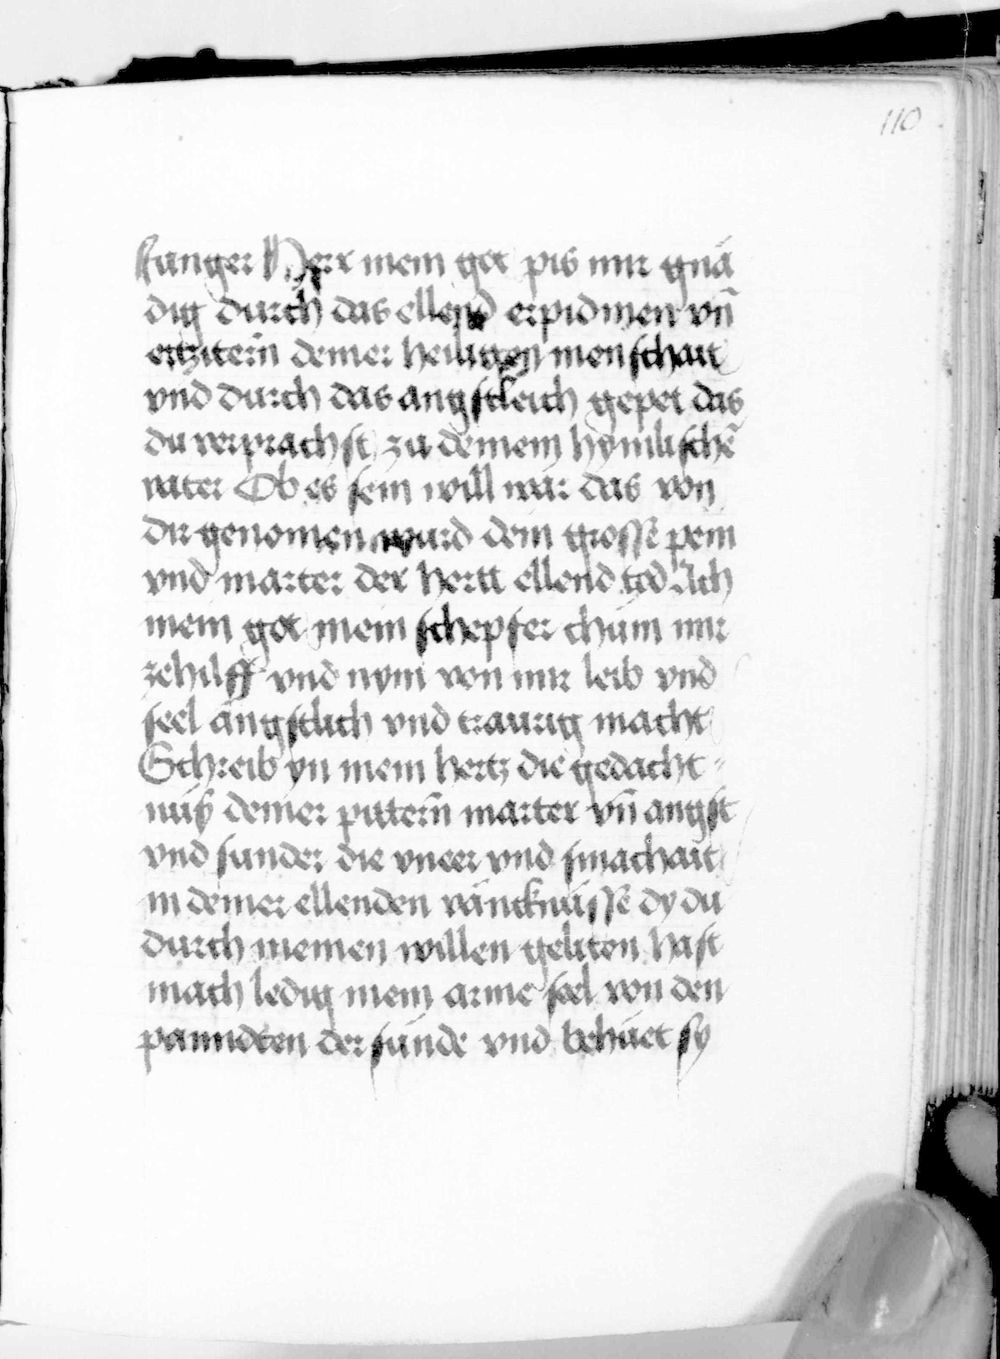 110
fanger Herr mein got pis mir gnä
dig durch das ellend erpidmen vn̄
ertzitern̄ deiner heiligen menschait
vnd durch das angstleich gepet das
du verprachst zu deinem hymlischē
vater Ob es sein will wär das von
dir genomen wurd dein grossē pein
vnd marter der hertt ellend tod Ach
mein got mein schepfer chüm mir
zehilff vnd nym von mir leib vnd
seel ängstlich vnd traurig macht
Schreib yn mein hertz die gedächt
nüß deiner pittern̄ marter vn̄ angst
vnd sunder die vneer vnd smachait
in deiner ellenden väncknüssē dy du
durch meinen willen geliten hast
mach ledig mein arme seel von den
panndten der sünde vnd behüet sy